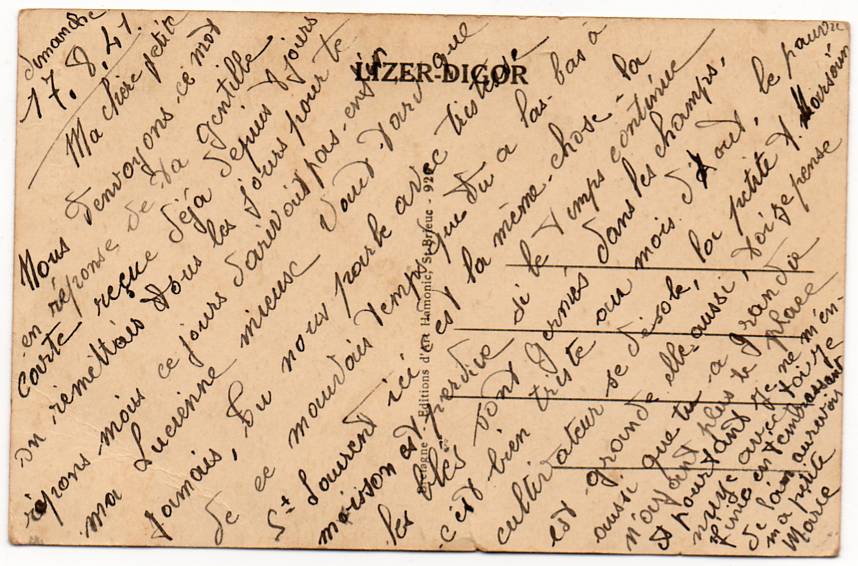 LIZER-DIGOR
Bretagne - Editions d'Art Hamonic, St-Brieuc - 920
Dimanche
17.8.41.
Ma chère petite
Nous t'envoyons ce mot
en réponse de ta gentille
carte reçue déjà depuis 8 jours
on remettais tous les jours pour te
répons mais ce jours pas enfin
ma Lucienne mieux vaud tard que
jamais, tu nous parle avec tristesse
de ce mauvais temps que tu a las-bas à
St Laurent ici est la même chose - la
moisson est perdue si le temps continue
les blés sont germés dans les champs,
c'est bien triste au mois d'Aout, le pauvre
cultivateur se désole, la petite
est grande elle aussi, toi je pense
aussi que tu a grandie
n'ayant plus ta place
et pourtant je ne m'en-
nuye avec toi je
en t'embrassant
de loin aurevoir
ma petite
Marie